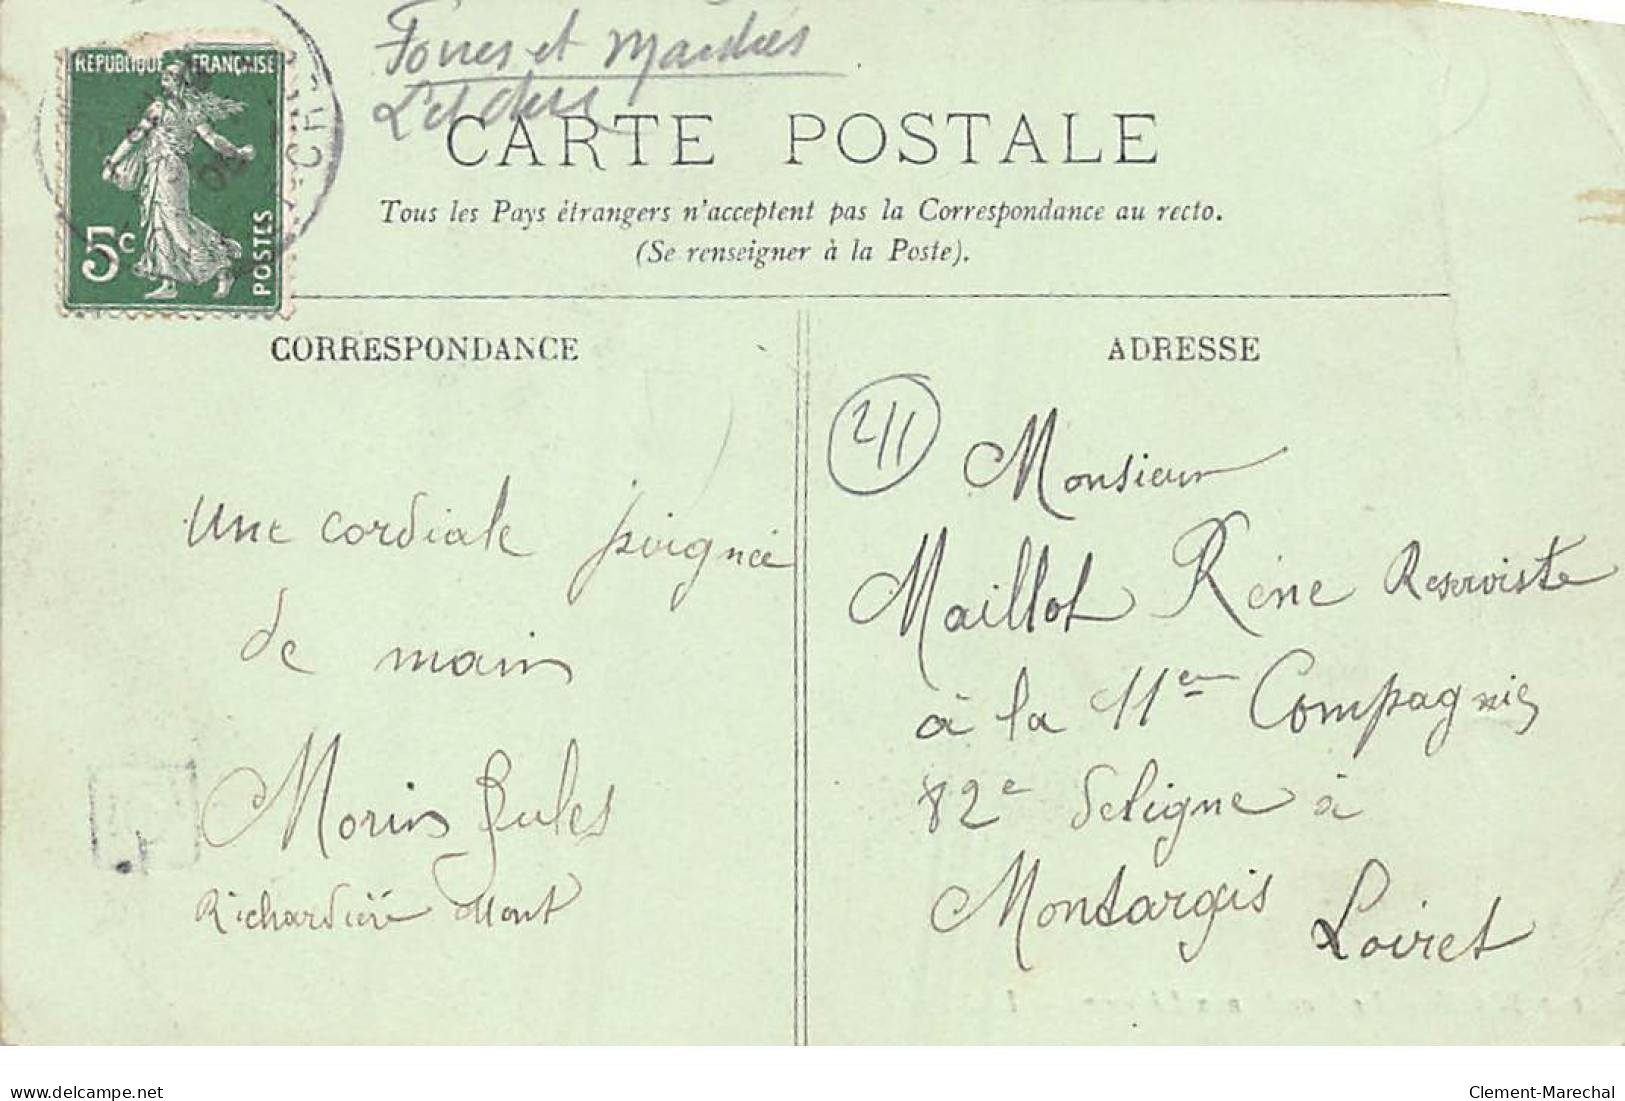 Foires et Marchés
RÉPUBLIQUE FRANÇAISE
5c
POSTES
CARTE POSTALE
Tous les Pays étrangers n'acceptent pas la Correspondance au recto.
(Se renseigner à la Poste).
CORRESPONDANCE
Une cordiale poignée
de main
Morin Jules
Richardière Mont
ADRESSE
211
Monsieur
Maillot Réne Reserviste
à la 11em Compagnie
82e de ligne à
Montargis Loiret
delcampe.net
Clement-Marechal